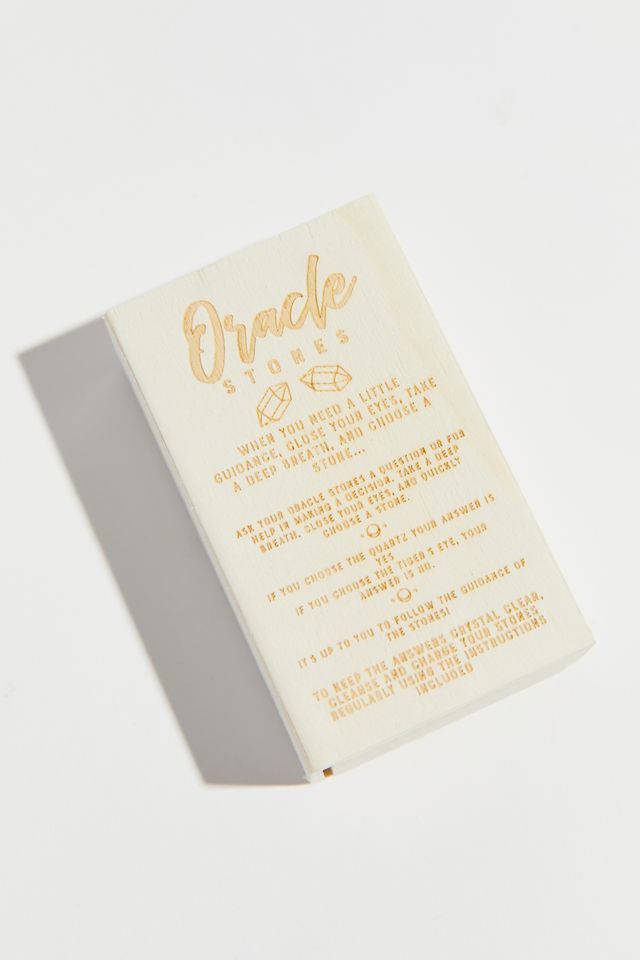 Oracle
STONES
WHEN YOU NEED A LITTLE
GUIDANCE, CLOSE YOUR EYES, TAKE
A DEEP BREATH, AND CHOOSE A
STONE...
ASK YOUR ORACLE STONES A QUESTION OR FOR
HELP IN MAKING A DECISION. TAKE A DEEP
BREATH, CLOSE YOUR EYES, AND QUICKLY
CHOOSE A STONE.
IF YOU CHOOSE THE QUARTZ YOUR ANSWER IS
YES
IF YOU CHOOSE THE TIGER'S EYE, YOUR
ANSWER IS NO.
IT'S UP TO YOU TO FOLLOW THE GUIDANCE OF
THE STONES!
TO KEEP THE ANSWERS CRYSTAL CLEAR,
CLEANSE AND CHARGE YOUR STONES
REGULARLY USING THE INSTRUCTIONS
INCLUDED